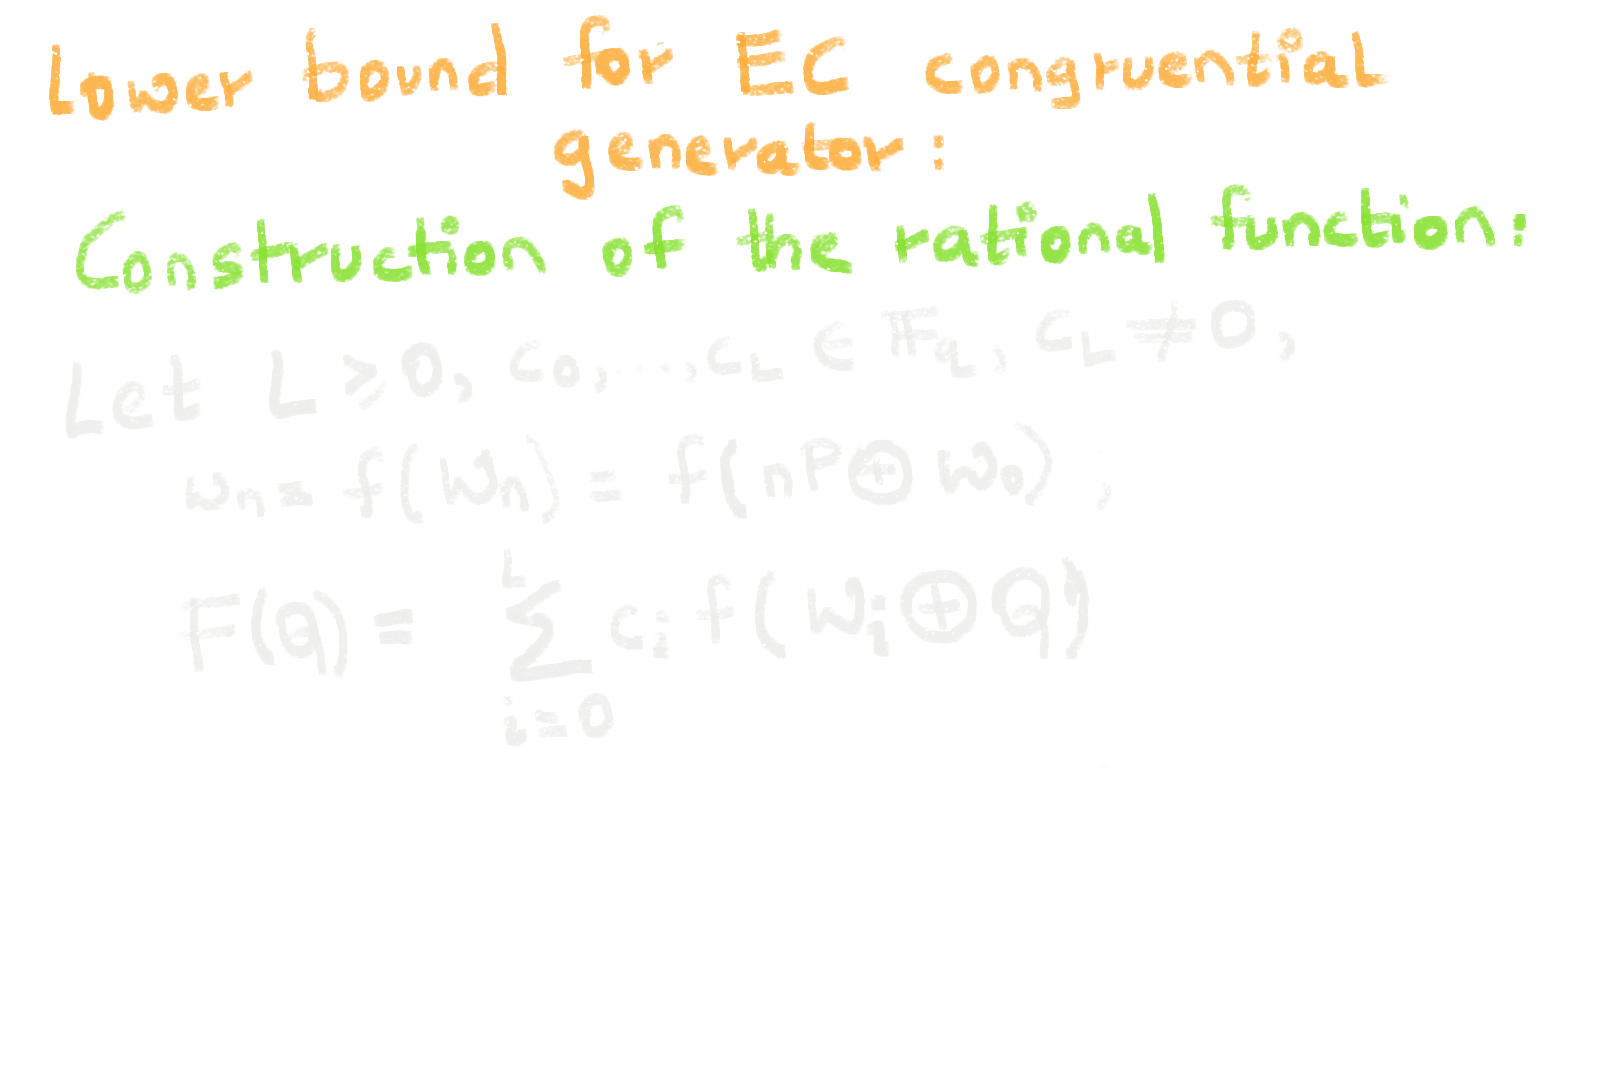 Lower bound for EC congruential
generator:
Construction of the rational function:
Let L ⩾ 0, c₀, ..., c_L ∈ 𝔽_q, c_L ≠ 0,
w_n = f(W_n) = f(nP ⊕ W₀),
F(Q) = ∑_{i=0}^{L} c_i f(W_i ⊕ Q)